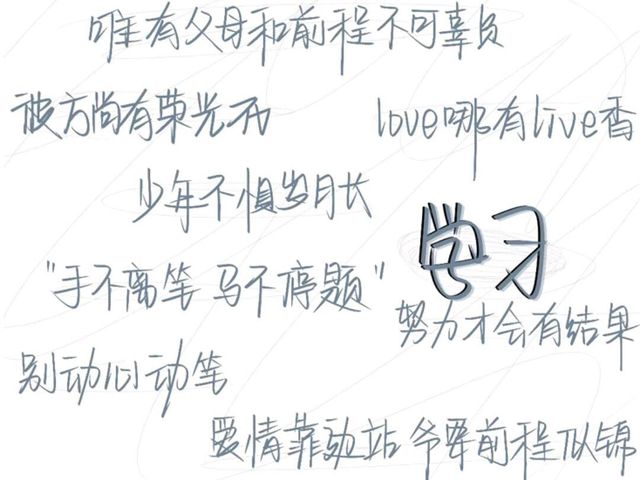 唯有父母和前程不可辜负
彼方尚有荣光在
love哪有live香
少年不惧岁月长
学习
"手不离笔 马不停题"
努力才会有结果
别动心动笔
爱情靠边站 爷要前程似锦